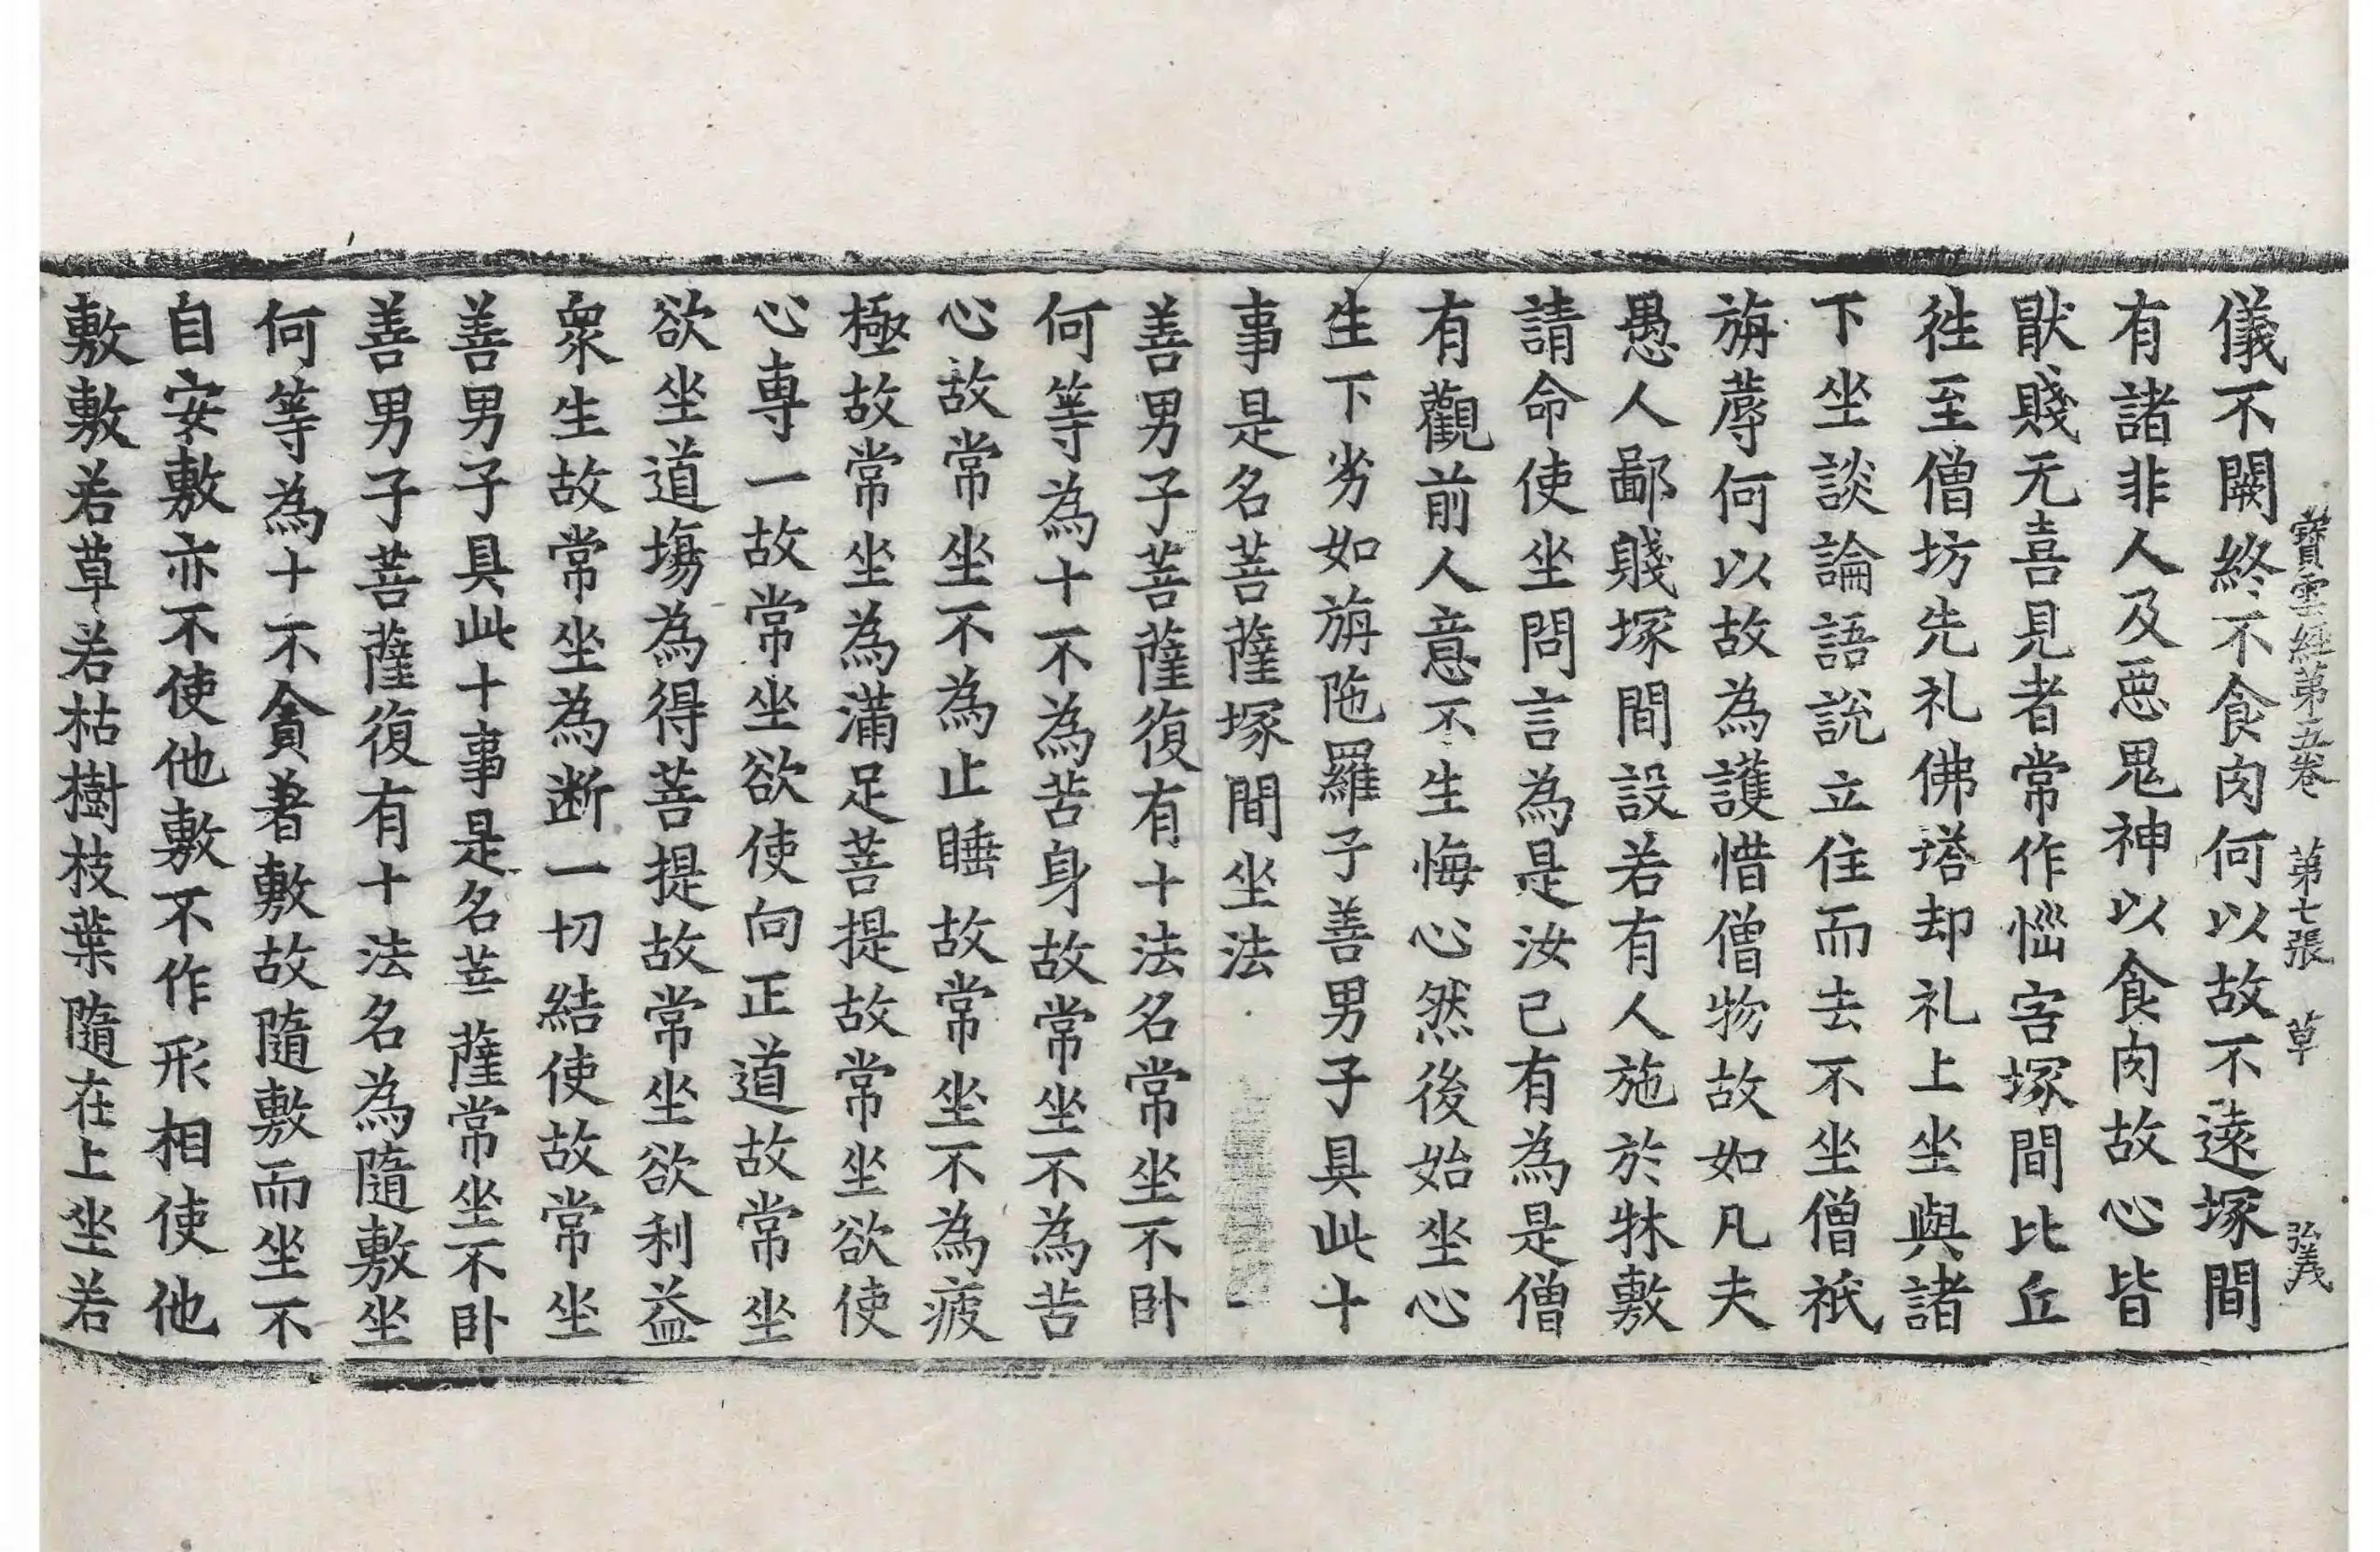 寶雲經第五卷 第七張 草 弘義
儀不闕終不食肉何以故不遠塚間
有諸非人及惡鬼神以食肉故心皆
猒賤无喜見者常作惱害塚間比丘
徃至僧坊先礼佛塔却礼上坐與諸
下坐談論語説立住而去不坐僧祇
旃蓐何以故為護惜僧物故如凡夫
愚人鄙賤塚間設若有人施於牀敷
請命使坐問言為是汝已有為是僧
有觀前人意不生悔心然後始坐心
生下劣如旃陁羅子善男子具此十
事是名菩薩塚間坐法
善男子菩薩復有十法名常坐不卧
何等為十不為苦身故常坐不為苦
心故常坐不為止睡故常坐不為疲
極故常坐為滿足菩提故常坐欲使
心專一故常坐欲使向正道故常坐
欲坐道塲為得菩提故常坐欲利益
衆生故常坐為断一切結使故常坐
善男子具此十事是名菩薩常坐不卧
善男子菩薩復有十法名為隨敷坐
何等為十不貪著敷故隨敷而坐不
自安敷亦不使他敷不作形相使他
敷敷若草若枯樹枝葉隨在上坐若